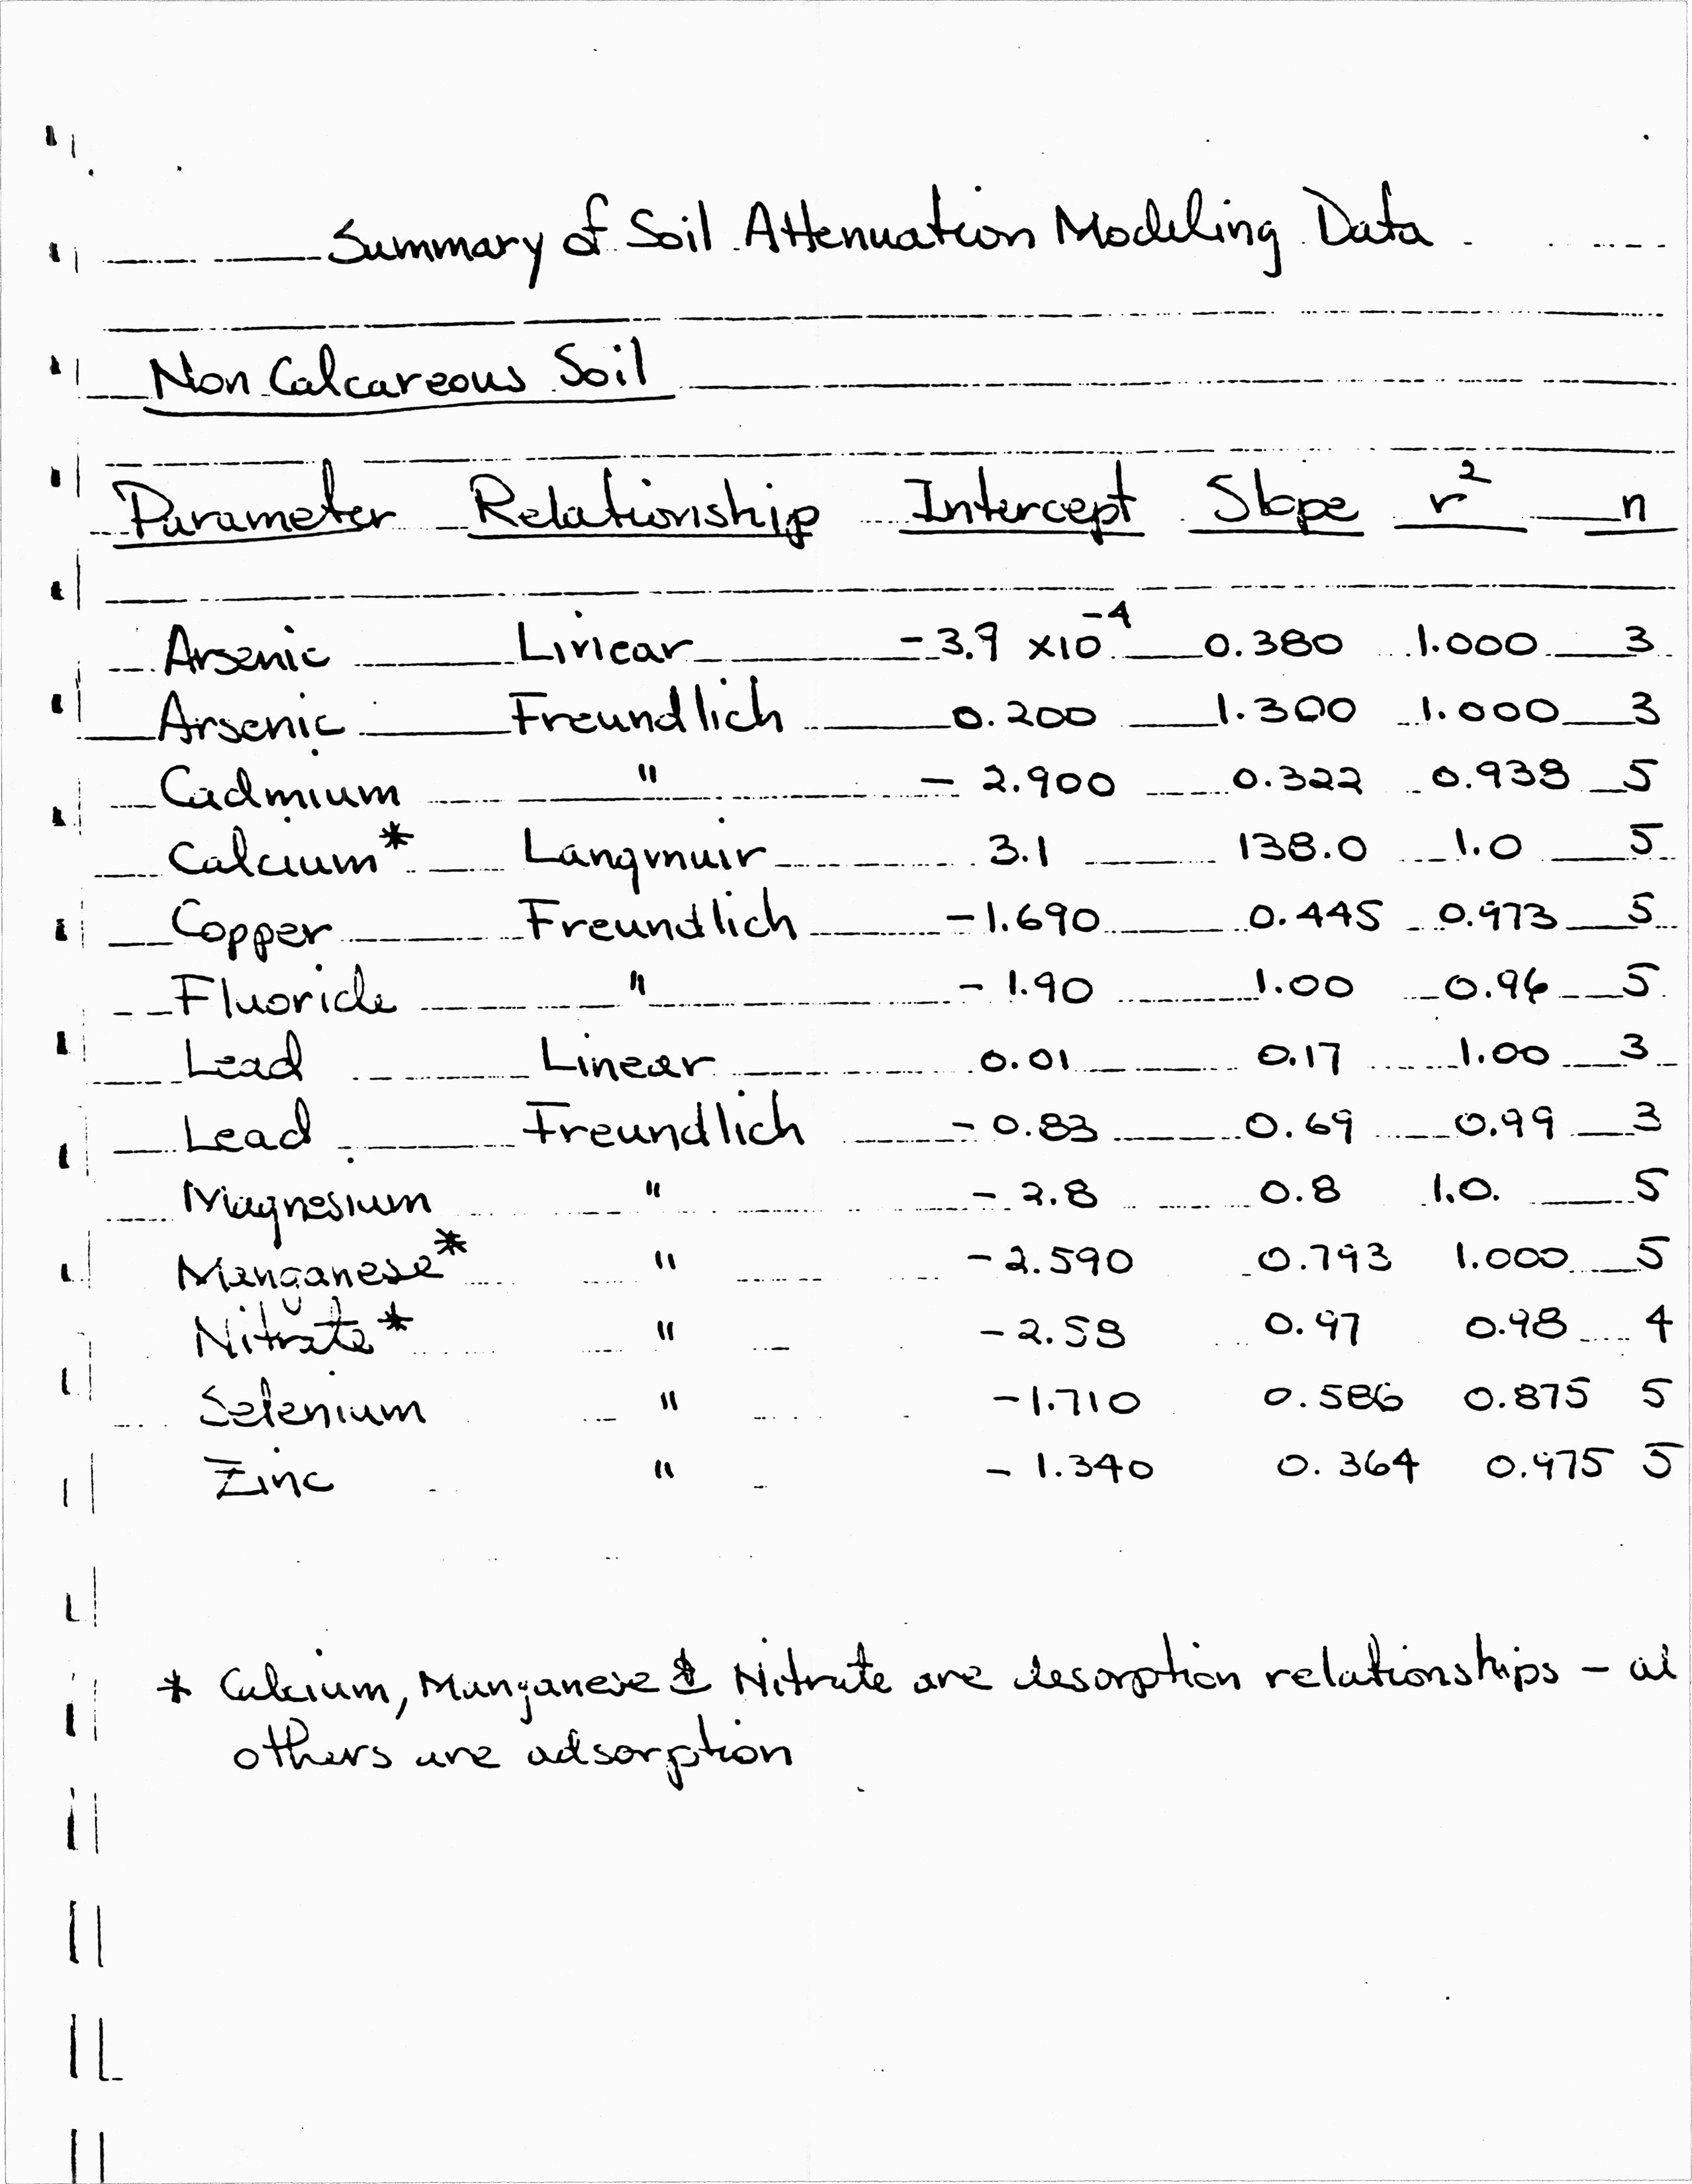 Summary of Soil Attenuation Modeling Data
Non Calcareous Soil
Parameter Relationship Intercept Slope r² n
Arsenic Linear -3.9 x10⁻⁴ 0.380 1.000 3
Arsenic Freundlich 0.200 1.300 1.000 3
Cadmium " - 2.900 0.322 0.938 5
Calcium* Langmuir 3.1 138.0 1.0 5
Copper Freundlich -1.690 0.445 0.973 5
Fluoride " - 1.90 1.00 0.96 5
Lead Linear 0.01 0.17 1.00 3
Lead Freundlich - 0.83 0.69 0.99 3
Magnesium " - 2.8 0.8 1.0 5
Manganese* " -2.590 0.793 1.000 5
Nitrate* " -2.58 0.97 0.98 4
Selenium " -1.710 0.586 0.875 5
Zinc " - 1.340 0.364 0.975 5
* Calcium, Manganese & Nitrate are desorption relationships - al
others are adsorption